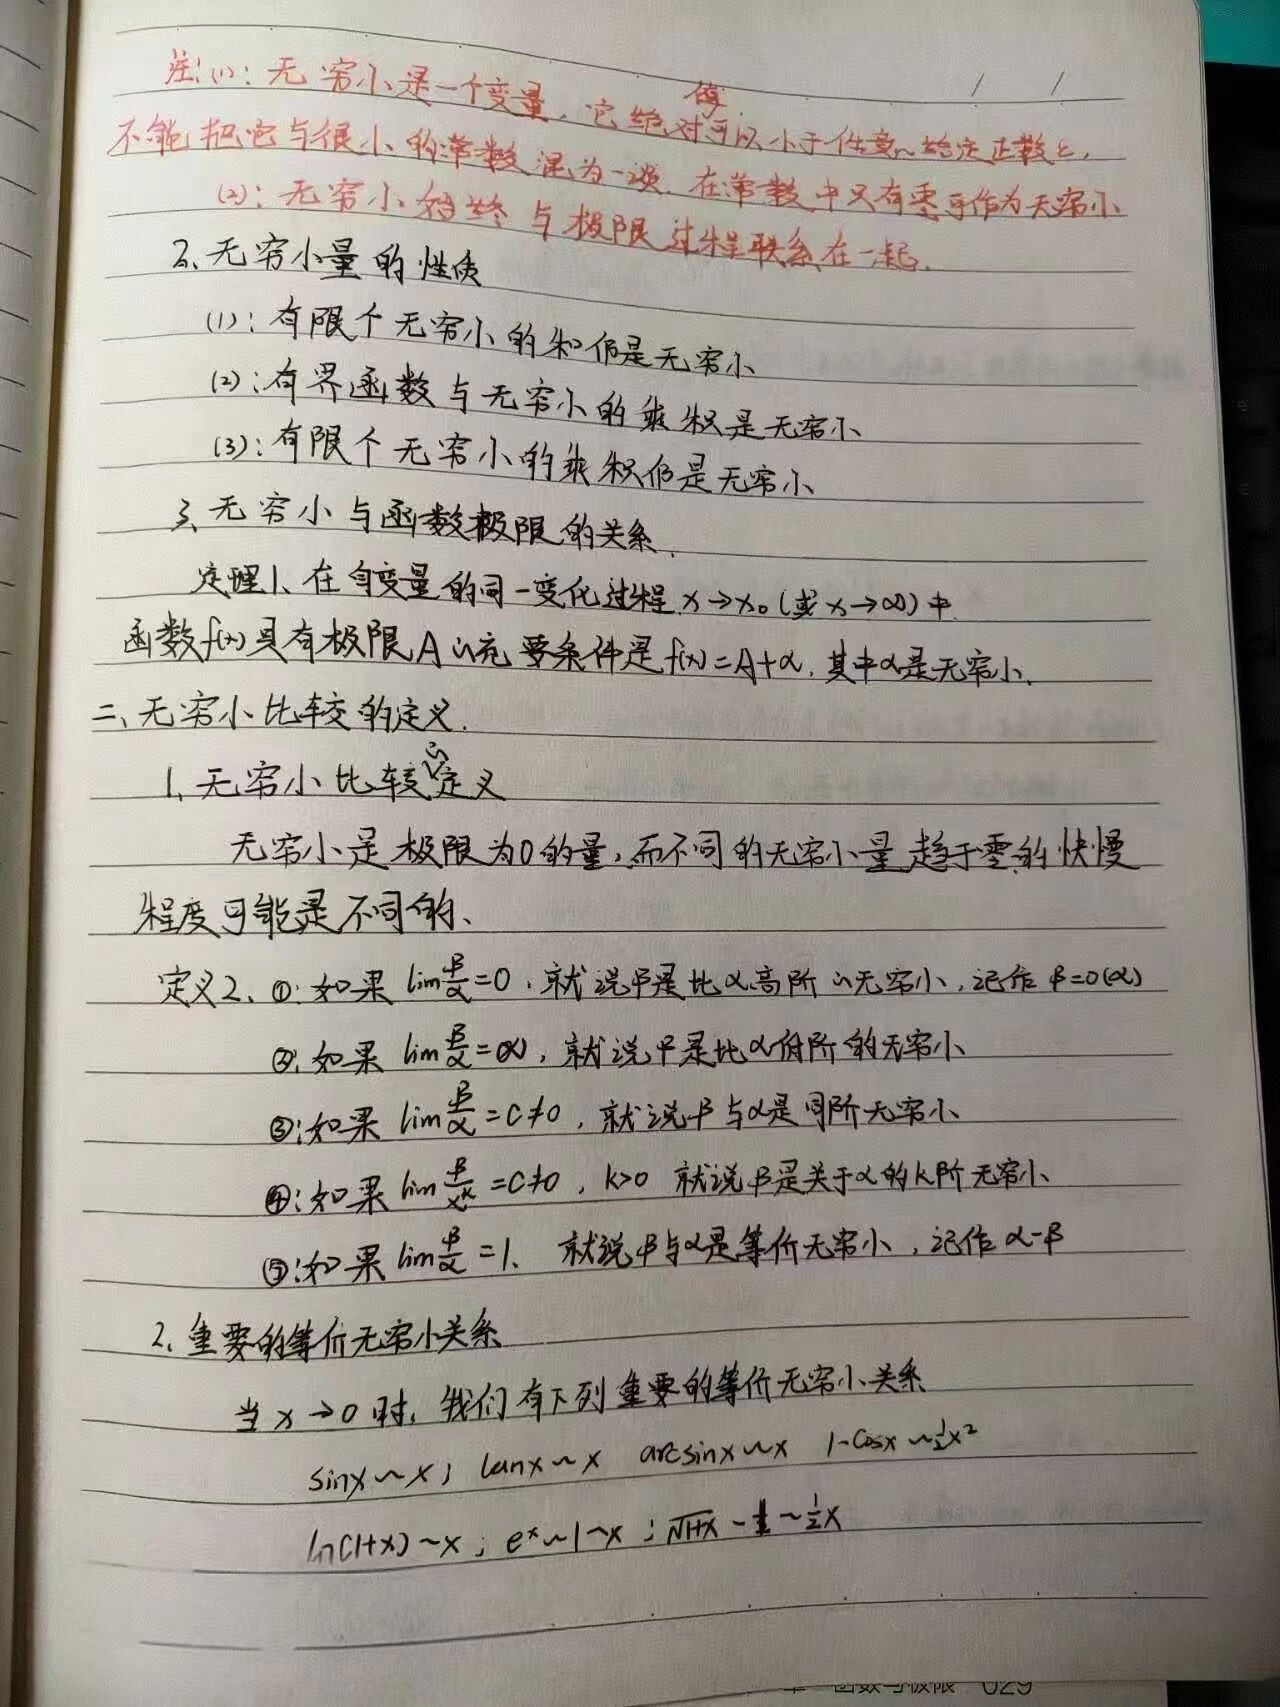 注:(1):无穷小是一个变量,它绝对值可以小于任意给定正数ε,
不能把它与很小的常数混为一谈.在常数中只有零可作为无穷小
(2):无穷小始终与极限过程联系在一起.
2、无穷小量的性质
(1):有限个无穷小的和仍是无穷小
(2):有界函数与无穷小的乘积是无穷小
(3):有限个无穷小的乘积仍是无穷小
3、无穷小与函数极限的关系.
定理1、在自变量的同一变化过程x→x₀(或x→∞)中
函数f(x)具有极限A的充要条件是f(x)=A+α,其中α是无穷小.
二、无穷小比较的定义.
1、无穷小比较的定义
无穷小是极限为0的量,而不同的无穷小量趋于零的快慢
程度可能是不同的、
定义2、①:如果 lim β/α=0,就说β是比α高阶的无穷小,记作β=0(α)
②:如果 lim β/α=∞,就说β是比α低阶的无穷小
③:如果 lim β/α=C≠0,就说β与α是同阶无穷小
④:如果 lim β/xᵏ=C≠0,k>0 就说β是关于α的k阶无穷小
⑤:如果 lim β/α=1、就说β与α是等价无穷小,记作α-β
2、重要的等价无穷小关系
当x→0时,我们有下列重要的等价无穷小关系
sinx~x; tanx~x arcsinx~x 1-cosx~½x²
ln(1+x)~x; eˣ~1~x; √1+x - 1~½x
函数与极限 029